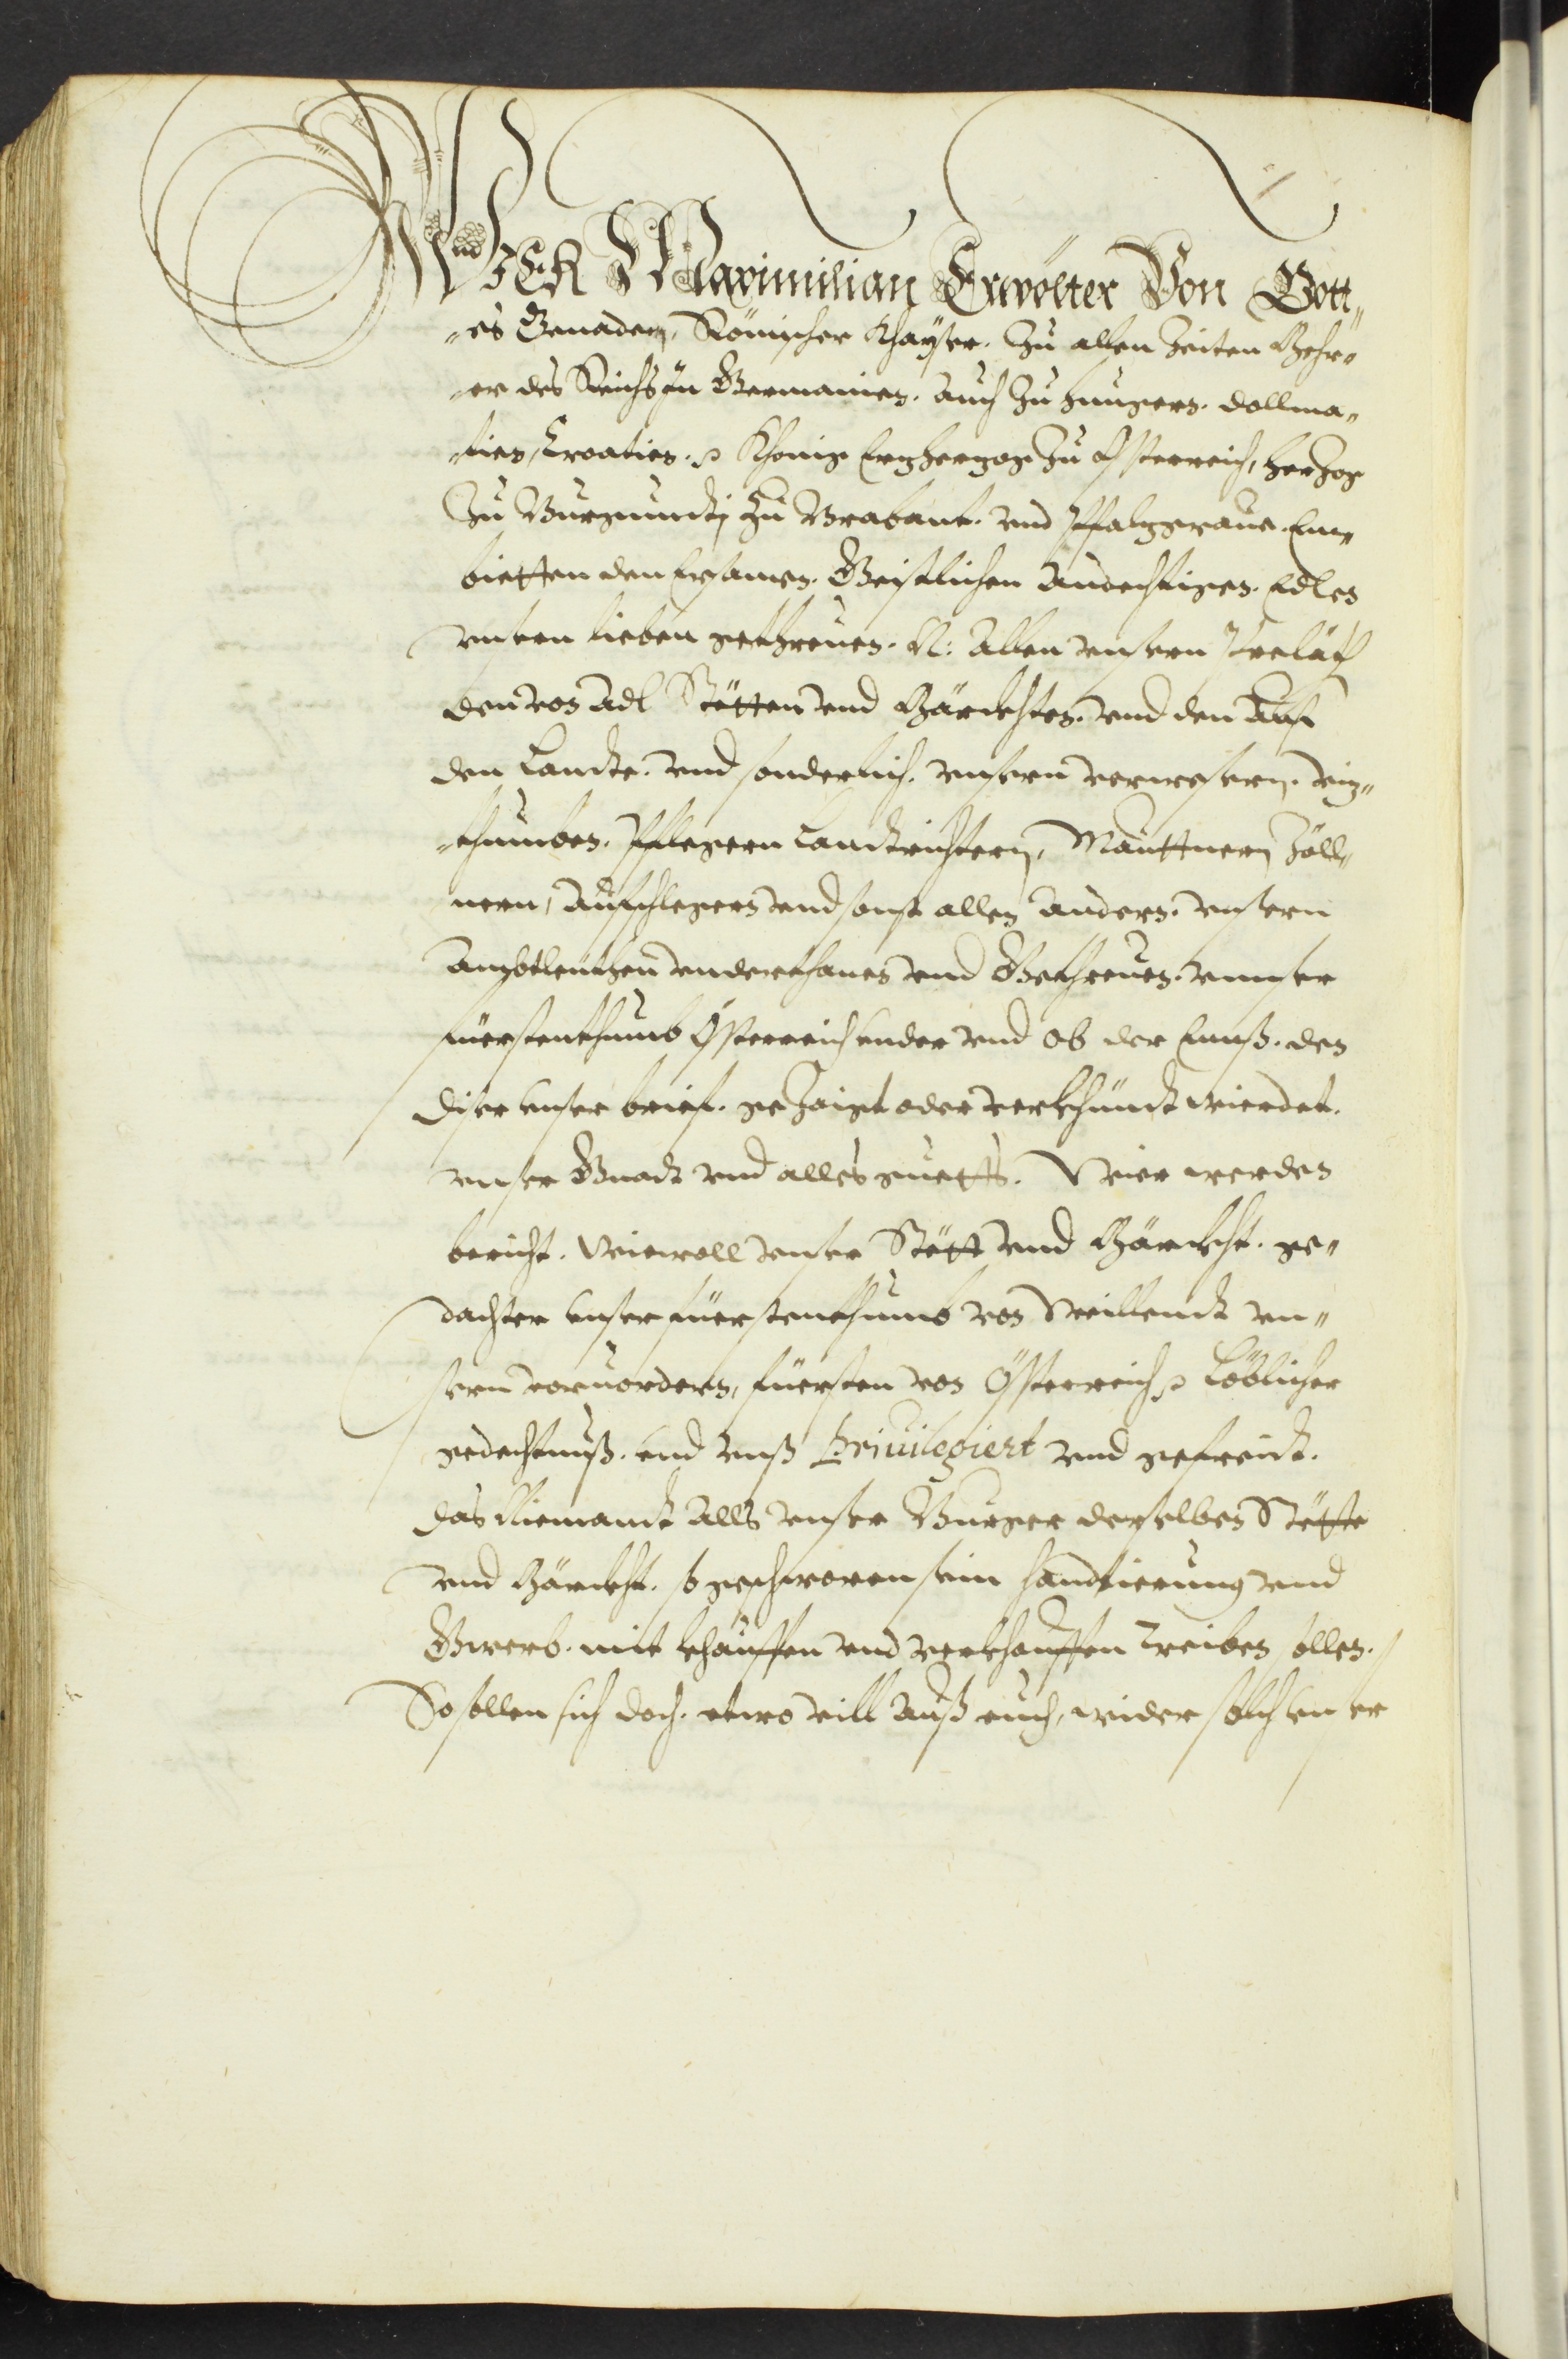 WIER Maximilian Erwölter Von Gott„
„es Genaden, Römischer Khayser. Zu allen Zeiten Mehr„
„er des Reichs in Germanien. auch zu Hungern. Dallma„
„tien, Croatien. Khönig Erzherzog zu Össterreich, Herzog
Zu Burgundtj zu Brabant. vnd Pfalzgraue. Em„
bietten den Ersamen. Geistlichen Andechtigen. Edlen
vnsern lieben gethreuen. N: Allen vnsern Prelät
den von Adl Stätten vnd Märckhten. vnd den Auf
den Landte. vnd sonderlich. vnsern verwesern. viz„
„thumben. Pflegern Landtrichtern, Mauttnern Zöll„
nern, Aufschlegern vnd sonst allen Andern. vnsern
Ambtleuthen vnderthanen vnd Gethreuen. vnnser
fürstenthumb Össterreich vnder vnd ob der Ennß. den
diser vnser brief. gezaigt oder verkhündt wierdet.
vnser Gnadt vnd alles guetts. Wier werden
bericht. Wiewoll vnser Stätt vnd Märckht. ge„
dachter vnser fürstenthumb von Weillendt vn„
sern voruordern, fürsten von Össterreich Löblicher
gedechtnuß. vnd vnß Priuilegiert vnd gefreidt.
das Niemandt Allß vnser Burger derselben Stätte
vnd Märckht. so geschworen sein Handtierung vnd
Gwerb. mit khauffen vnd verkhauffen Treiben sollen.
So sollen sich doch. etwo vill Auß euch, wider solch vnser